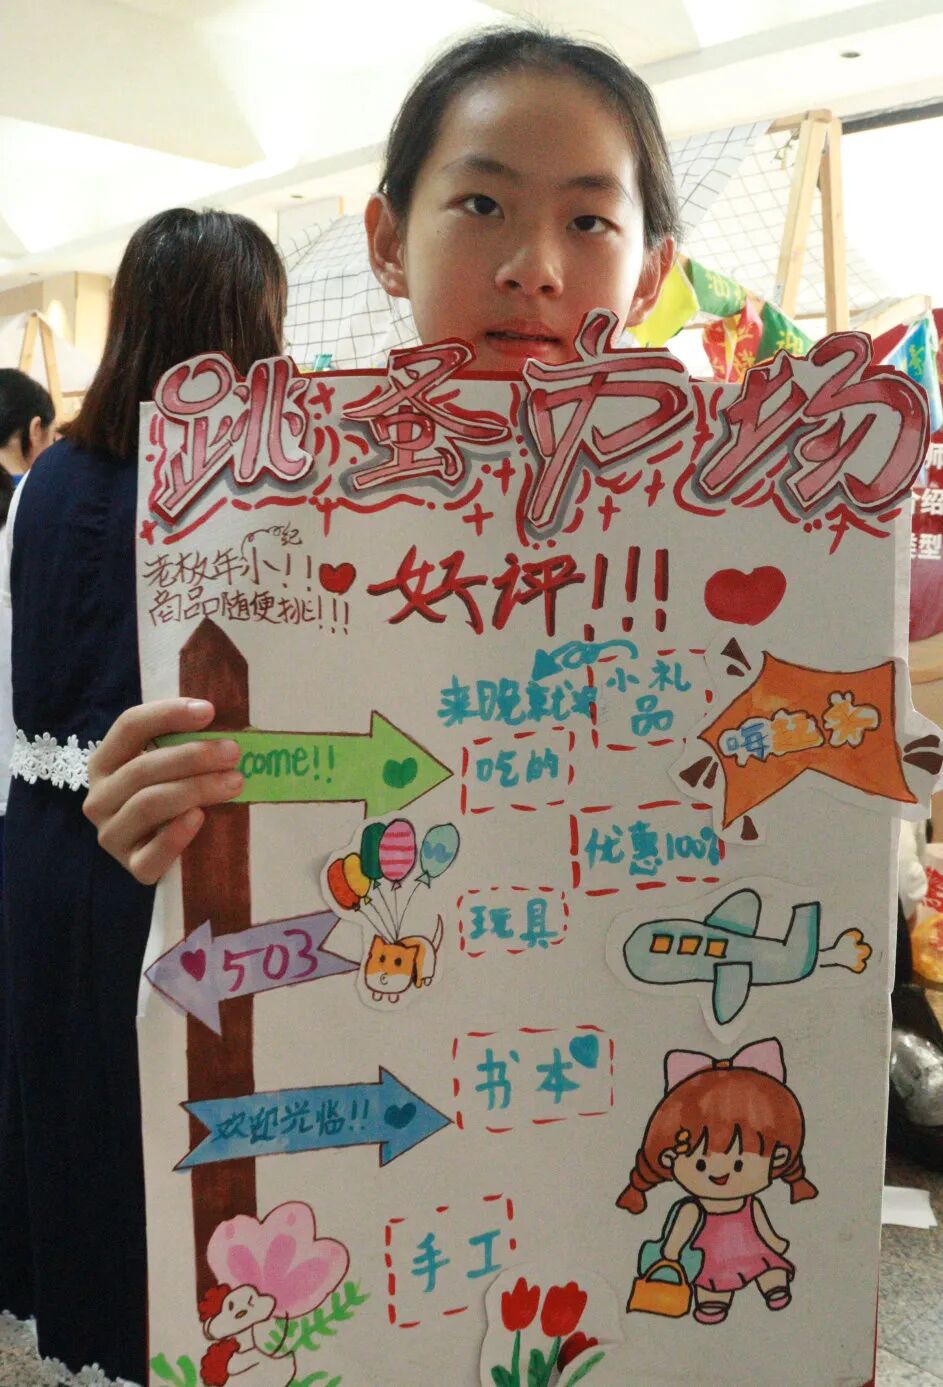 跳蚤市场
老板年纪小!!
商品随便挑!!!
好评!!!
来晚就
小礼
品
嗨
come!!
吃的
优惠100%
玩具
503
书本
欢迎光临!!
手工
绍
型